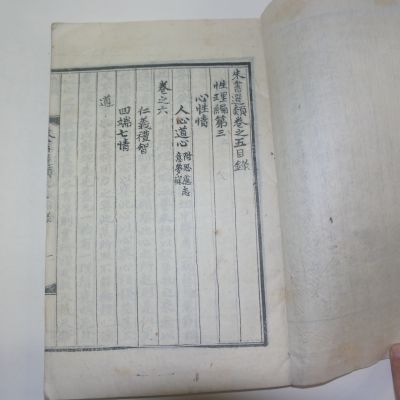 朱書選類卷之五目錄
性理編第三
心性情
人心道心 附思慮志意夢寐
卷之六
仁義禮智
四端七情
道